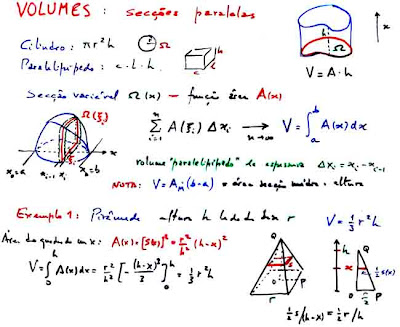 VOLUMES : secções paralelas
Cilindro : πr²h
Ω
Paralelipípedo : c·l·h
h
c
l
h
Ω
x
V = A·h
Secção variável Ω(x) — função área A(x)
Ω(ξᵢ)
x
x₀=a
xᵢ₋₁
xᵢ
xₙ=b
∑ᵢ₌₁ⁿ A(ξᵢ) Δxᵢ →ₙ→∞ V = ∫ₐᵇ A(x) dx
volume "paralelipípedo" de espessura Δxᵢ = xᵢ - xᵢ₋₁
NOTA: V = A_M (b-a) = área secção média × altura
Exemplo 1: Pirâmide altura h lado da base r
V = ⅓ r²h
Área do quadrado em x: A(x) = [s(x)]² = r²/h² (h-x)²
V = ∫₀ʰ A(x) dx = r²/h² [-(h-x)³/3]₀ʰ = ⅓ r²h
Q
s
O
P
r
h
x
O
Q
½ s(x)
O
P
r/2
½ s/(h-x) = ½ r/h